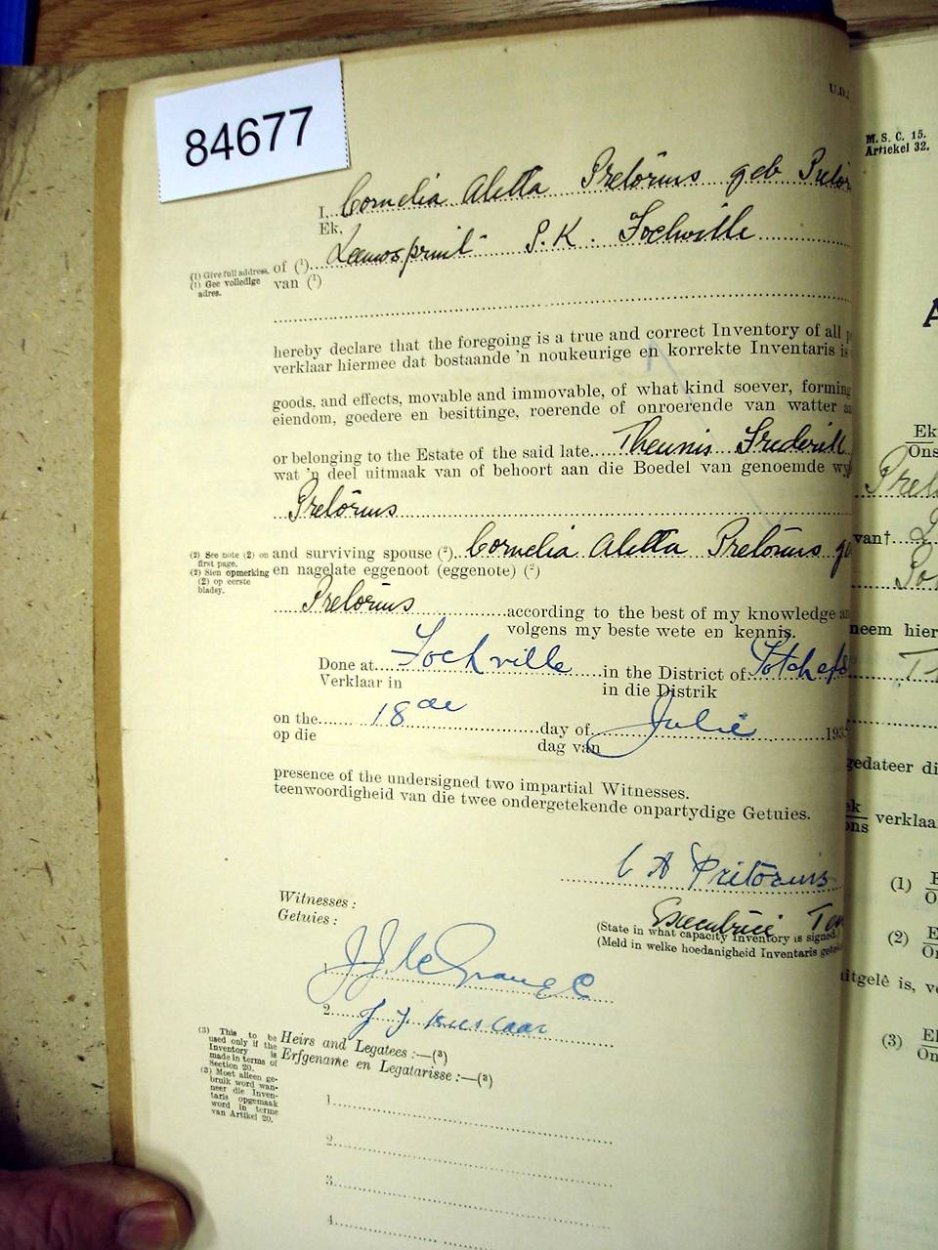 84677
U.D.
I, Cornelia Aletta Pretorius geb Pretor
Ek,
Leeuwspruit P.K. Fochville
of (¹)
van (¹)
(1) Give full address.
(1) Gee volledige
adres.
hereby declare that the foregoing is a true and correct Inventory of all
verklaar hiermee dat bostaande 'n noukeurige en korrekte Inventaris is
goods, and effects, movable and immovable, of what kind soever, forming
eiendom, goedere en besittinge, roerende of onroerende van watter
or belonging to the Estate of the said late Theunis Frederik
wat 'n deel uitmaak van of behoort aan die Boedel van genoemde wy
Pretorius
(2) See note (2) on
first page.
(2) Sien opmerking
(2) op eerste
bladsy.
and surviving spouse (²) Cornelia Aletta Pretorius g
en nagelate eggenoot (eggenote) (²)
Pretorius according to the best of my knowledge
volgens my beste wete en kennis.
Done at Fochville in the District of Potchefs
Verklaar in in die Distrik
on the 18de day of Julie 193
op die dag van
presence of the undersigned two impartial Witnesses.
teenwoordigheid van die twee ondergetekende onpartydige Getuies.
C A Pretorius
Witnesses :
Getuies :
Executrice Tes
(State in what capacity Inventory is signed.
(Meld in welke hoedanigheid Inventaris
J. J. le Grange
2.
Heirs and Legatees :—(³)
Erfgename en Legatarisse :—(³)
(3) This to be
used only if the
Inventory is
made in terms of
Section 20.
(3) Moet alleen ge-
bruik word wan-
neer die Inven-
taris opgemaak
word in terme
van Artikel 20.
1.
2.
3.
4.
M.S.C. 15.
Artiekel 32.
A
Ek
Ons
Pret
van†
neem hier
gedateer di
Ek
Ons verklaa
(1) E
O
(2) E
O
uitgelê is, v
(3) E
On